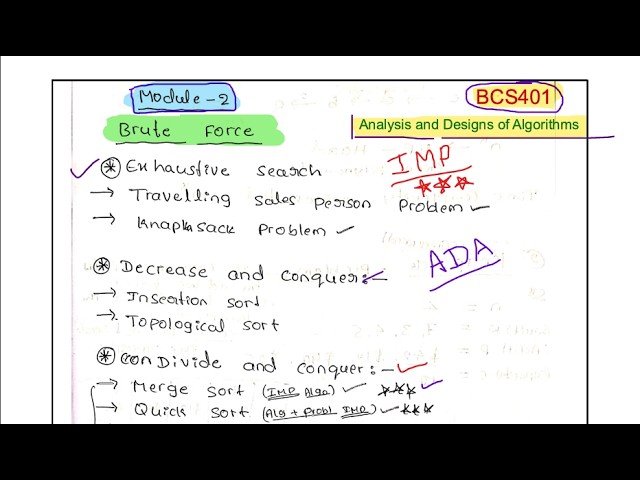 Module - 2
BCS401
Brute Force
Analysis and Designs of Algorithms
* Exhaustive search
IMP
→ Travelling sales person Problem
→ Knapksack Problem
ADA
* Decrease and conquer:-
→ Insertion sort
→ Topological sort
* con Divide and conquer:-
→ Merge sort (IMP Algo)
→ Quick sort (Alg + Probl IMP)